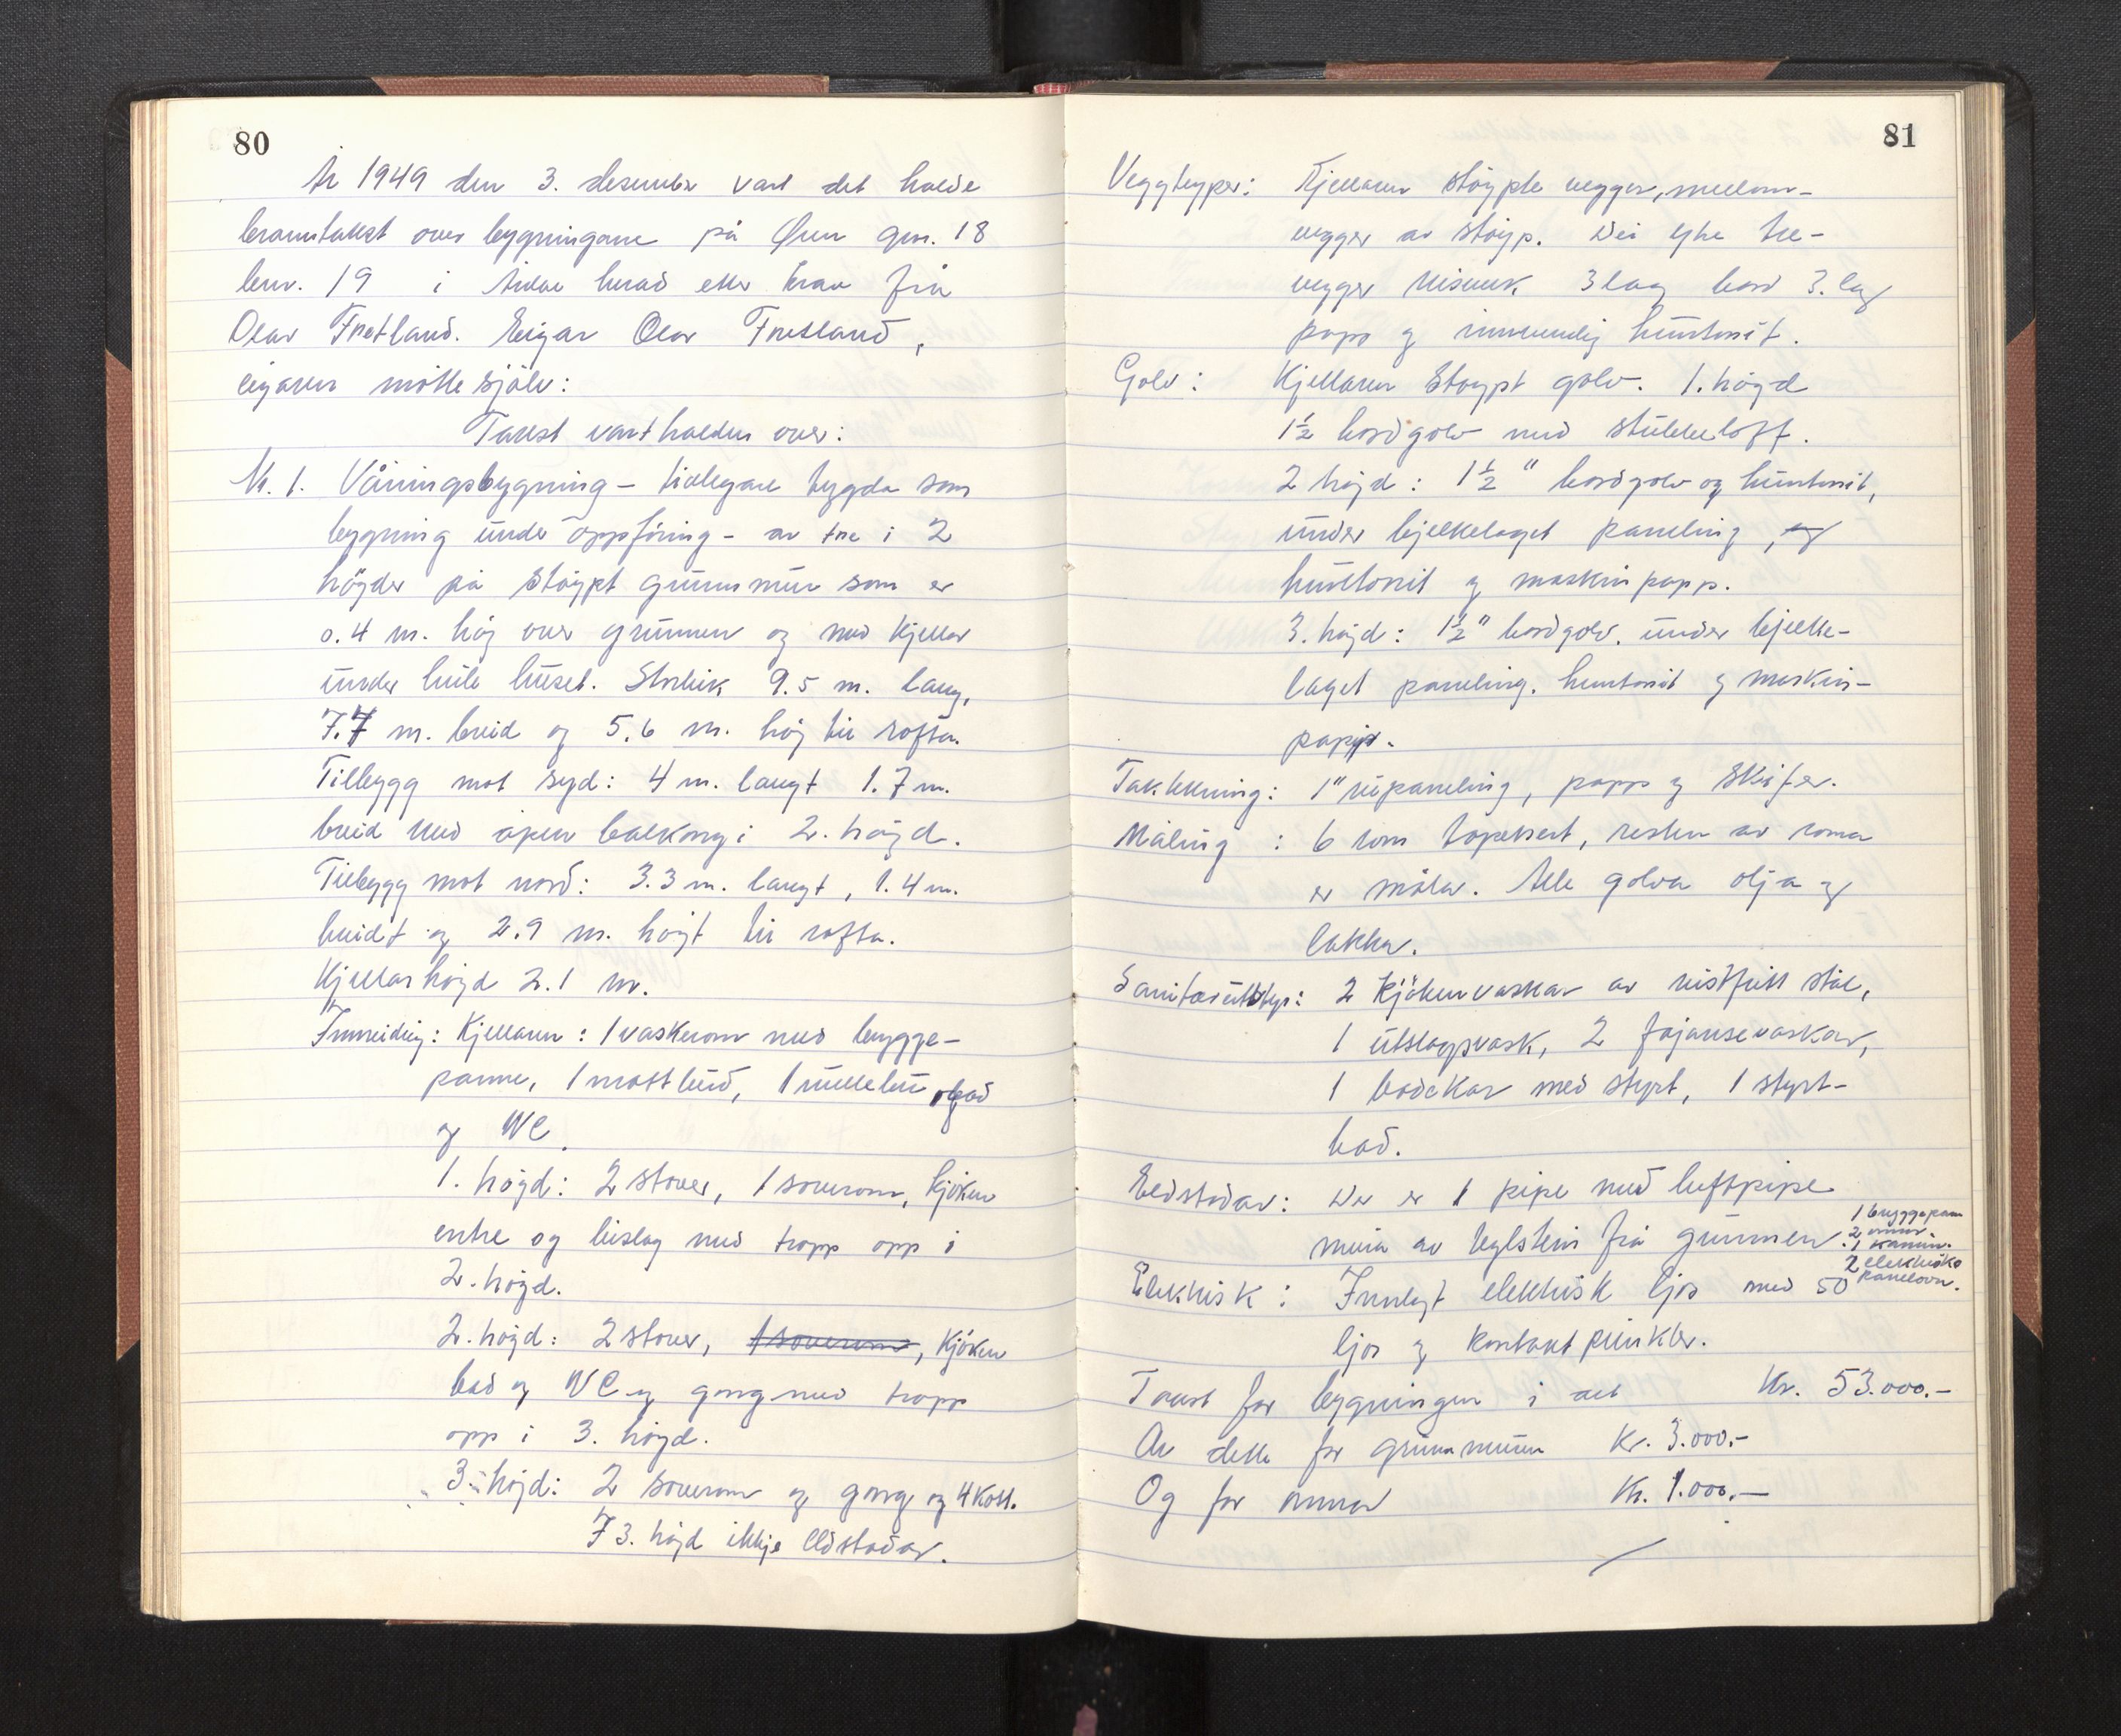 80
År 1949 den 3. desember vart det halde
branntakst over bygningane på Øren gnr. 18
bnr. 19 i herad etter krav frå
Olav Fretland. Eigar Olav Fretland,
eigaren møtte sjølv:
Takst vart halden over:
Nr. 1. Våningsbygning – tidlegare bygda som
bygning under oppföring – av tre i 2
högder på stöypt grunnmur som er
0.4 m. høg over grunnen og med kjellar
under heile huset. Storleik 9.5 m. lang,
7.7 m. breid og 5.6 m. høg til rofta.
Tilbygg mot syd: 4 m. langt 1.7 m.
breid med åpen balkong i 2. høgd.
Tilbygg mot nord: 3.3 m. langt, 1.4 m.
breidt og 2.9 m. høgt til rofta.
Kjellarhøgd 2.1 m.
Innreidig: Kjellaren: 1 vaskerom med brygge-
panne, 1 matbud, 1 rullebu, bad
og WC.
1. høgd: 2 stover, 1 soverom, kjøken
entre og bislag med tropp opp i
2. høgd.
2. høgd: 2 stover, 1 soverom, kjøken
bad og WC og gang med tropp
opp i 3. høgd.
3. høgd: 2 soverom og gang og 4 kott.
I 3. høgd ikkje eldstadar.
81
Veggtyper: Kjellaren støypte vegger, mellom-
vegger av støyp. Dei ytre tre-
vegger reisverk 3 lag bord 3. lag
papp og innvendig huntonit.
Golv: Kjellaren støypt golv. 1. høgd
1½ bordgolv med stubbeloft.
2 høgd: 1½" bordgolv og huntonit,
under bjelkelaget paneling, og
huntonit og maskinpapp.
3. høgd: 1½" bordgolv. under bjelke-
laget paneling. huntonit og maskin-
papp.
Taktekning: 1" rupaneling, papp og skifer.
Måling: 6 rom tapetsert, resten av roma
er måla. Alle golva olja og
lakka.
Sanitærutstyr: 2 kjøkenvaskar av rustfritt stål,
1 utslagsvask, 2 fajansevaskar,
1 badekar med styrt, 1 styrt-
bad.
Eldstadar: Der er 1 pipe med luftpipe
mura av teglstein frå grunnen
1 bryggepann
2 omnar.
1 kamin.
2 elektriske
panelovn.
Elektrisk: Innlagt elektrisk ljos med 50
ljos og kontaktpunkter.
Takst for bygningen i alt Kr. 53.000.-
Av dette for grunnmuren Kr. 3.000.-
Og for omnar Kr. 1.000.-